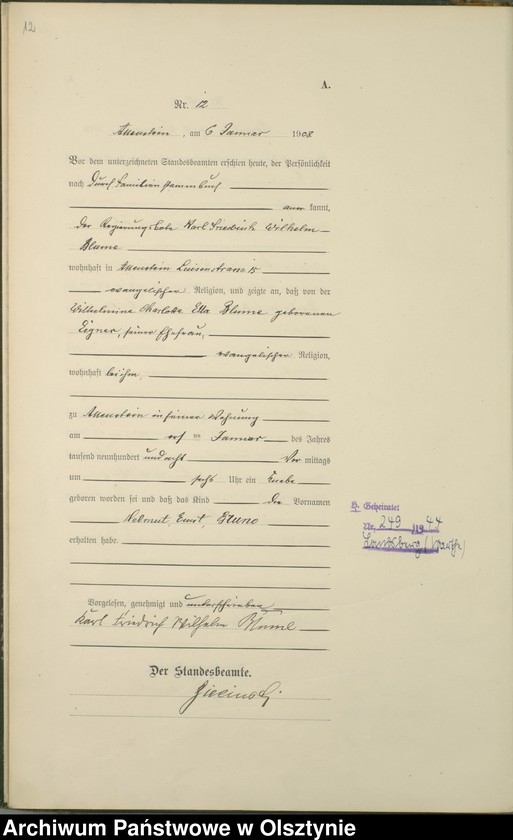 12
A.
Nr. 12
Allenstein, am 6 Januar 1908
Vor dem unterzeichneten Standesbeamten erschien heute, der Persönlichkeit
nach durch Familienstammbuch
aner kannt,
der Regierungsbote Karl Friedrich Wilhelm
Blume
wohnhaft in Allenstein Luisenstrasse 15
evangelischer Religion, und zeigte an, daß von der
Wilhelmine Charlotte Ella Blume geborenen
Eigner, seiner Ehefrau,
evangelischer Religion,
wohnhaft bei ihm,
zu Allenstein in seiner Wohnung
am ersten Januar des Jahres
tausend neunhundert und acht Vor mittags
um sechs Uhr ein Knabe
geboren worden sei und daß das Kind die Vornamen
Helmut, Emil, Bruno
erhalten habe.
Vorgelesen, genehmigt und unterschrieben
Karl Friedrich Wilhelm Blume
Der Standesbeamte.
H. Geheiratet
Nr. 249 1944
Landsberg (Warthe)
Archiwum Państwowe w Olsztynie